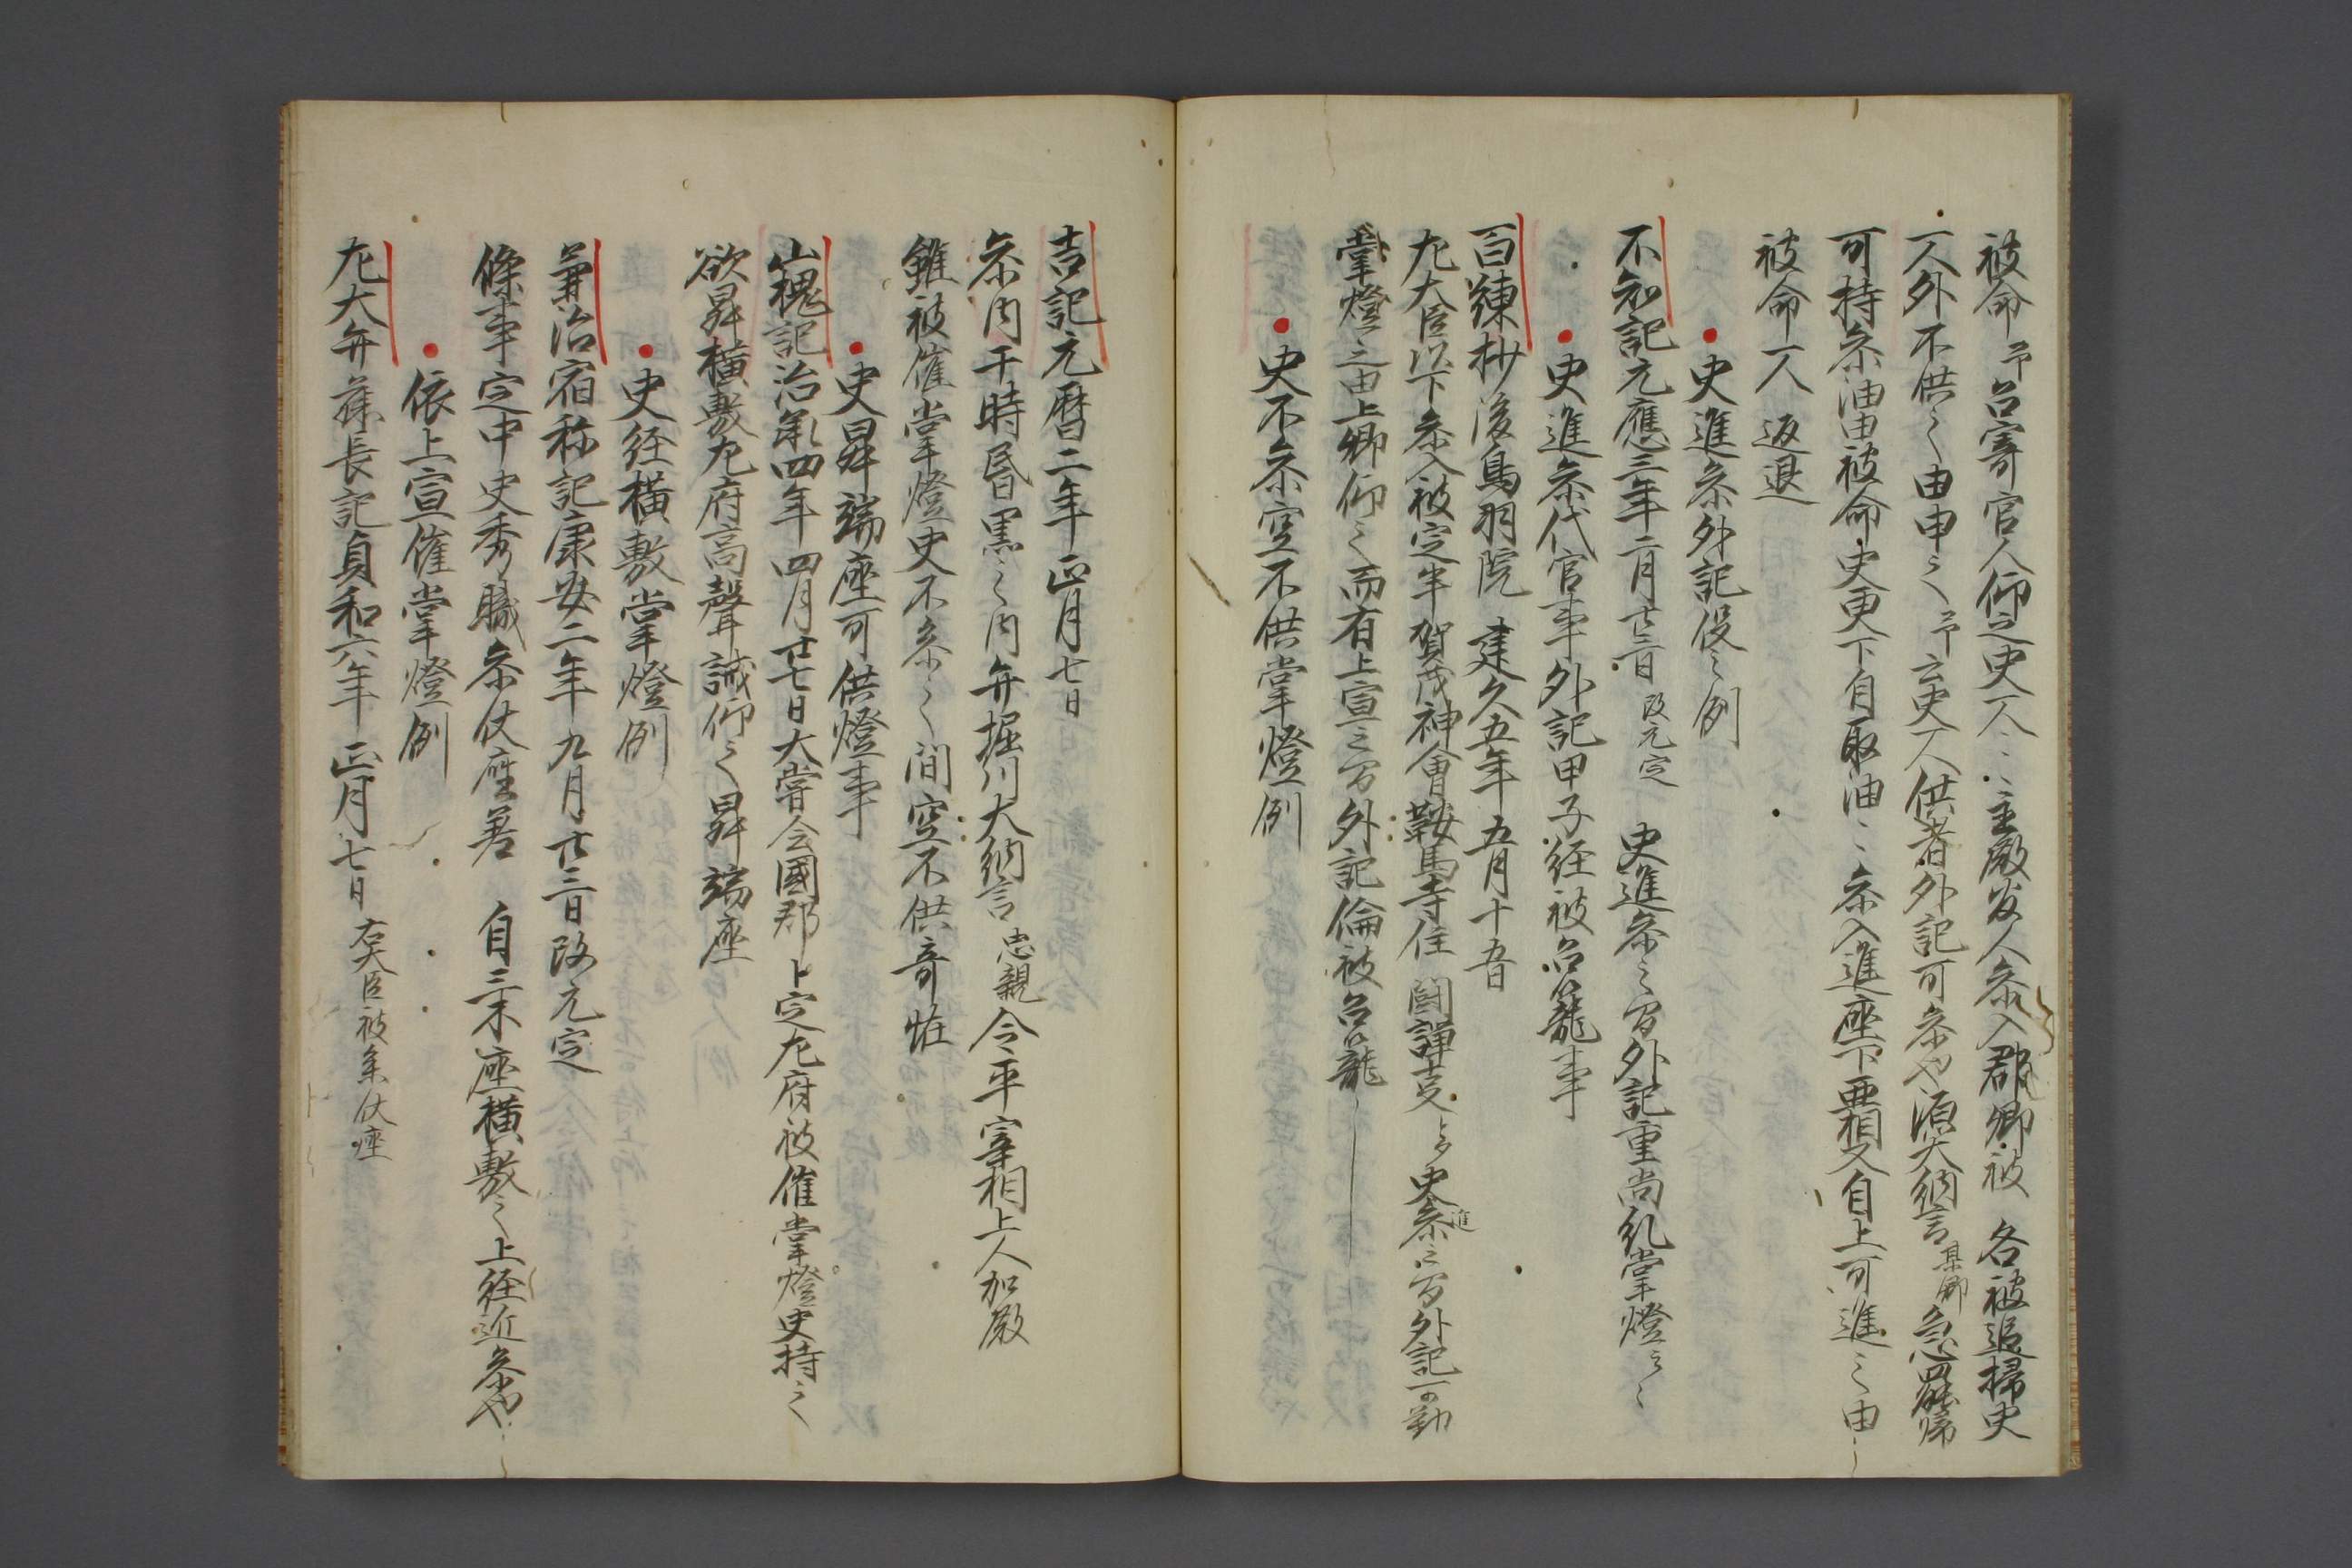 被命予召寄官人仰之史一人〻〻主殿官人参入郡卿被 各被追掃史
一人外不供之由申之予云史一人供者外記可参や源大納言某卿急罷帰
可持参油由被命史更下自取油〻参入進座下要相又自上可進之由
被命一人 返退
史進参外記役之例
不知記元應三年二月廿三日改元定 史進参之間外記重尚乱掌燈云々
史進参代官事外記甲子経被召籠事
百練抄後鳥羽院 建久五年五月十五日
左大臣以下参入被定申賀茂神會鞍馬寺住 闘諍叓与史進参之間外記可勤
掌燈之由上卿仰之而有上宣之間外記倫被召籠
史不参空不供掌燈例
吉記元暦二年正月七日
参内于時昏黒之内弁堀川大納言忠親今平宰相上人加殿
雖被催掌燈史不参之間空不供奇恠
史昇端座可供燈事
山槐記治承四年四月廿七日大嘗会國郡卜定左府被催掌燈史持之
欲昇横敷左府高聲誡仰之昇端座
史経横敷掌燈例
兼治宿祢記康安二年九月廿三日改元定
條事定中史秀職参仗座着 自三木座横敷之上経近参や
依上宣催掌燈例
左大弁蘓長記貞和六年正月七日右大臣被参仗座